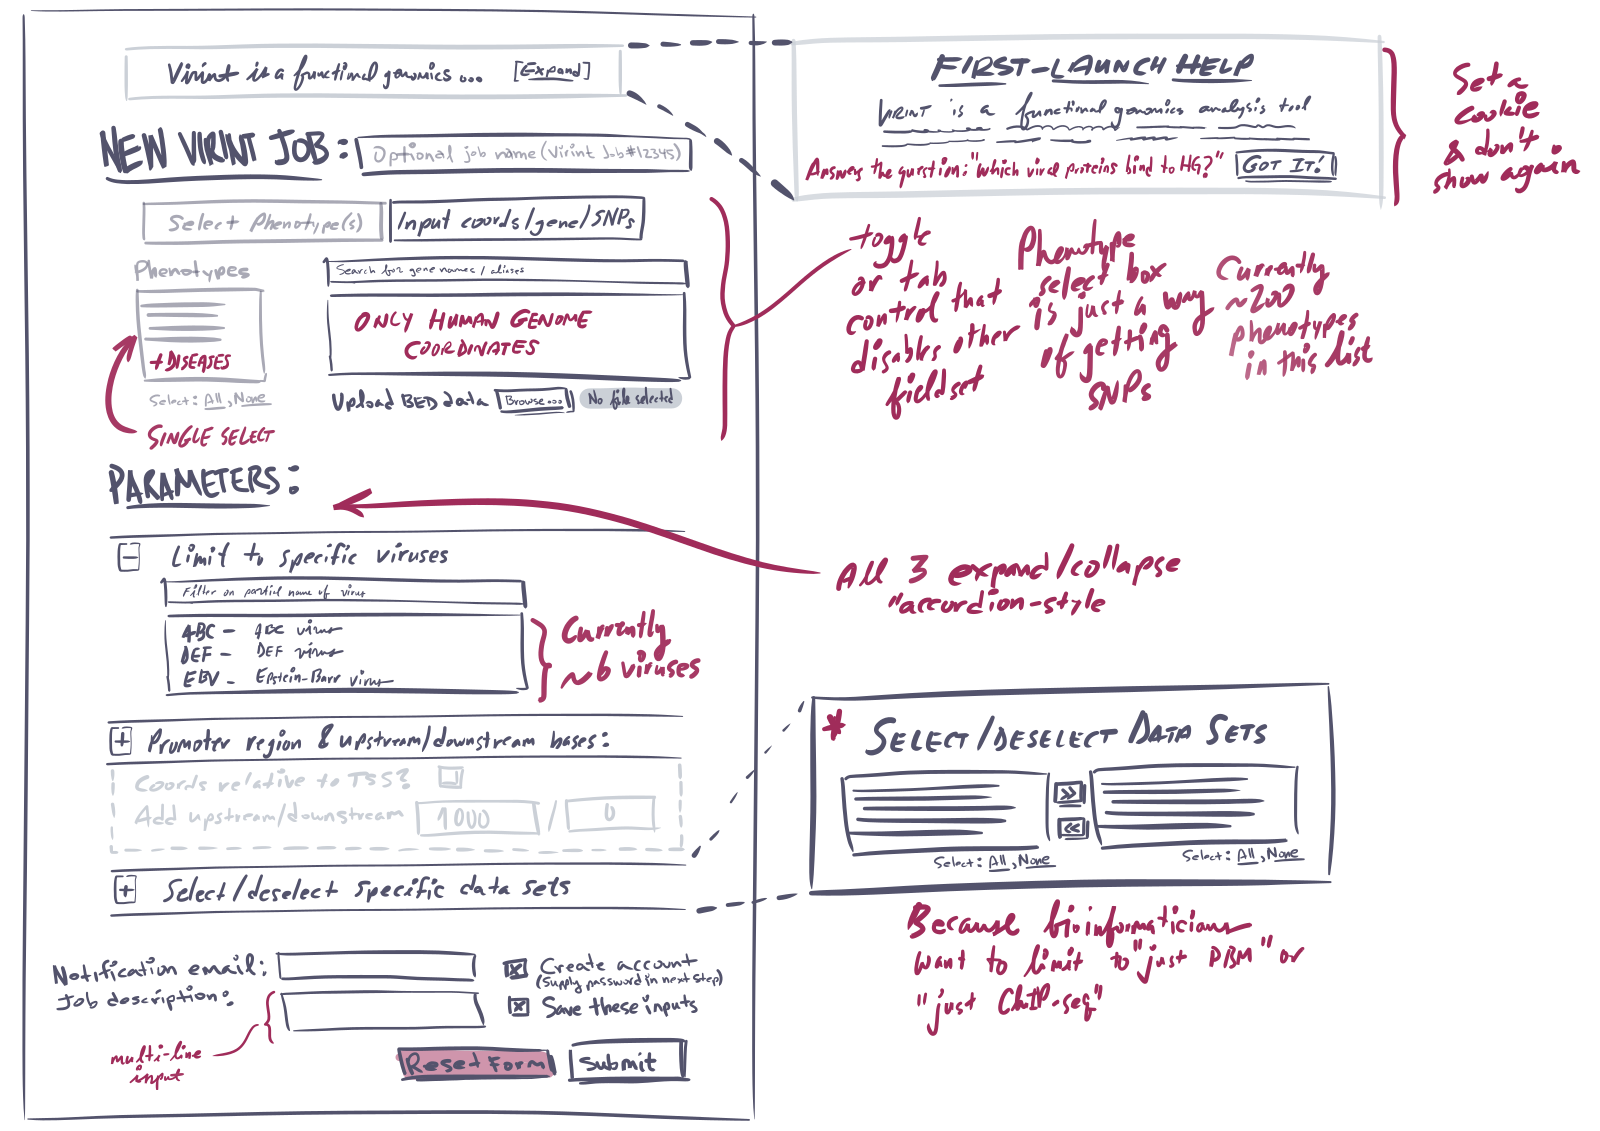 Virint is a functional genomics ... [Expand]
NEW VIRINT JOB: Optional job name (Virint Job #12345)
Select Phenotype(s) Input coords/gene/SNPs
Phenotypes
Search for gene names / aliases
+DISEASES
ONLY HUMAN GENOME
COORDINATES
Select: All, None
Upload BED data Browse... No file selected
SINGLE SELECT
PARAMETERS:
- Limit to specific viruses
Filter on partial name of virus
ABC - ABC virus
DEF - DEF virus
EBV - Epstein-Barr virus
Currently
~6 viruses
+ Promoter region & upstream/downstream bases:
Coords relative to TSS?
Add upstream/downstream 1000 / 0
+ Select/deselect specific data sets
Notification email:
Create account
(Supply password in next step)
Job description:
Save these inputs
multi-line
input
Reset Form Submit
FIRST-LAUNCH HELP
VIRINT is a functional genomics analysis tool
Answers the question: "Which viral proteins bind to HG?" GOT IT!
Set a
cookie
& don't
show again
toggle
or tab
control that
disables other
fieldset
Phenotype
select box
is just a way
of getting
SNPs
Currently
~200
phenotypes
in this list
All 3 expand/collapse
"accordion-style
* SELECT/DESELECT DATA SETS
>>
<<
Select: All, None
Select: All, None
Because bioinformaticians
want to limit to "just PBM" or
"just ChIP-seq"